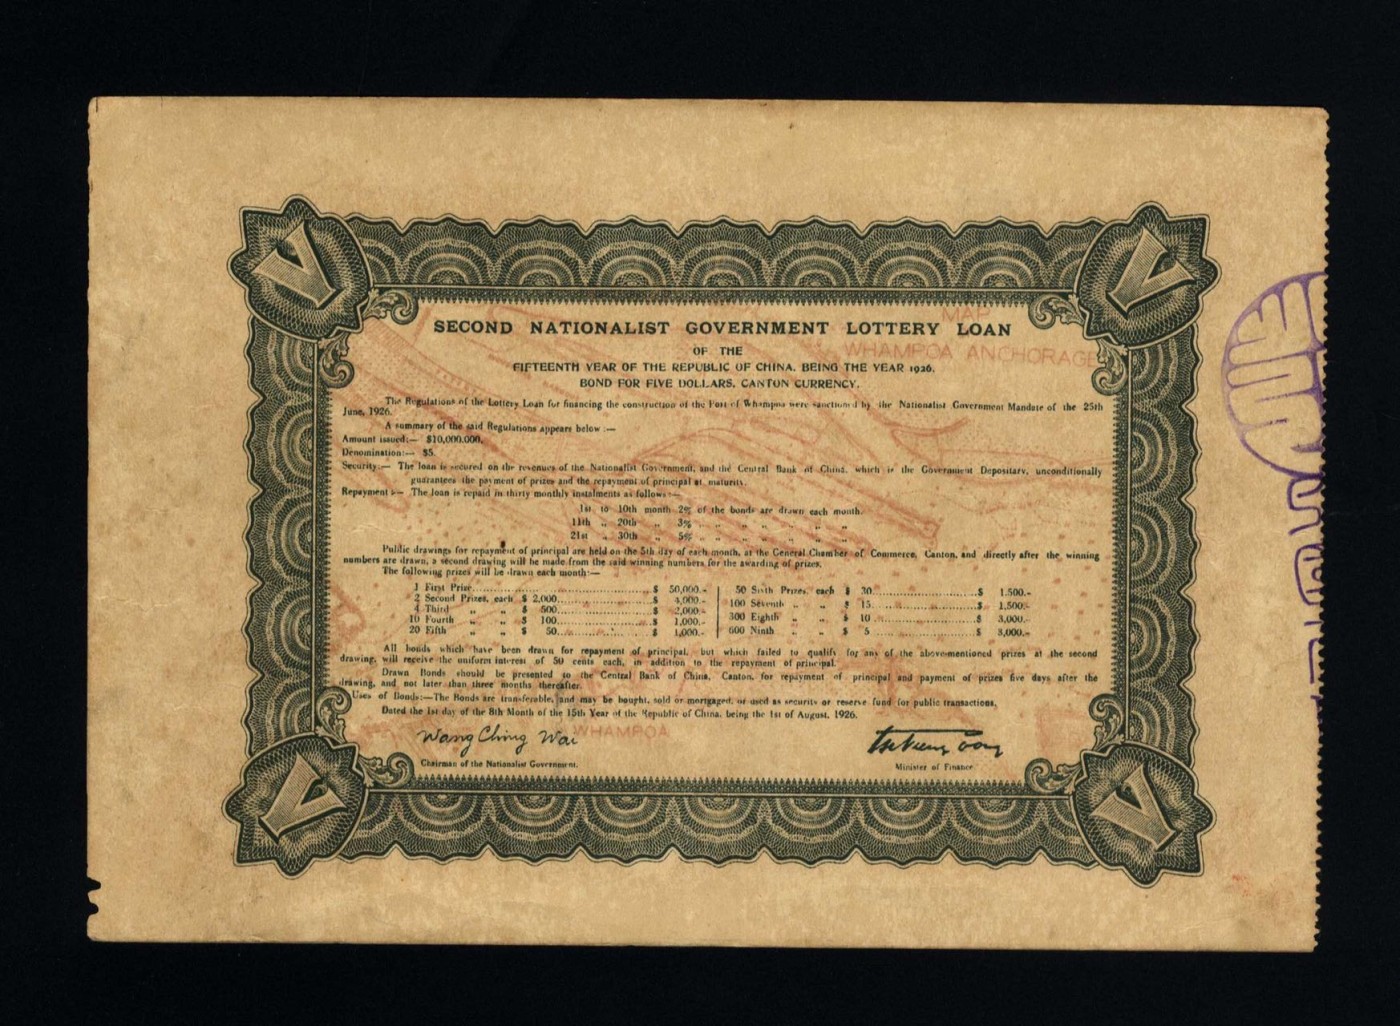 V V
MAP
WHAMPOA ANCHORAGE
SECOND NATIONALIST GOVERNMENT LOTTERY LOAN
OF THE
FIFTEENTH YEAR OF THE REPUBLIC OF CHINA, BEING THE YEAR 1926.
BOND FOR FIVE DOLLARS, CANTON CURRENCY.
The Regulations of the Lottery Loan for financing the construction of the Port of Whampoa were sanctioned by the Nationalist Government Mandate of the 25th
June, 1926.
A summary of the said Regulations appears below :—
Amount issued:— $10,000,000.
Denomination:— $5.
Security:— The loan is secured on the revenues of the Nationalist Government, and the Central Bank of China, which is the Government Depositary, unconditionally
guarantees the payment of prizes and the repayment of principal at maturity.
Repayment :— The loan is repaid in thirty monthly instalments as follows:—
1st to 10th month 2% of the bonds are drawn each month.
11th „ 20th „ 3% „ „ „ „ „ „ „
21st „ 30th „ 5% „ „ „ „ „ „ „
Public drawings for repayment of principal are held on the 5th day of each month, at the General Chamber of Commerce, Canton, and directly after the winning
numbers are drawn, a second drawing will be made from the said winning numbers for the awarding of prizes.
The following prizes will be drawn each month:—
1 First Prize........................................$ 50,000.- 50 Sixth Prizes, each $ 30........................$ 1,500.-
2 Second Prizes, each $ 2,000........................$ 4,000.- 100 Seventh „ „ $ 15........................$ 1,500.-
4 Third „ „ $ 500........................$ 2,000.- 300 Eighth „ „ $ 10........................$ 3,000.-
10 Fourth „ „ $ 100........................$ 1,000.- 600 Ninth „ „ $ 5........................$ 3,000.-
20 Fifth „ „ $ 50........................$ 1,000.-
All bonds which have been drawn for repayment of principal, but which failed to qualify for any of the above-mentioned prizes at the second
drawing, will receive the uniform interest of 50 cents each, in addition to the repayment of principal.
Drawn Bonds should be presented to the Central Bank of China, Canton, for repayment of principal and payment of prizes five days after the
drawing, and not later than three months thereafter.
Uses of Bonds:—The Bonds are transferable, and may be bought, sold or mortgaged, or used as security or reserve fund for public transactions.
Dated the 1st day of the 8th Month of the 15th Year of the Republic of China, being the 1st of August, 1926.
WHAMPOA
Wang Ching Wai
Chairman of the Nationalist Government.
Minister of Finance
V V